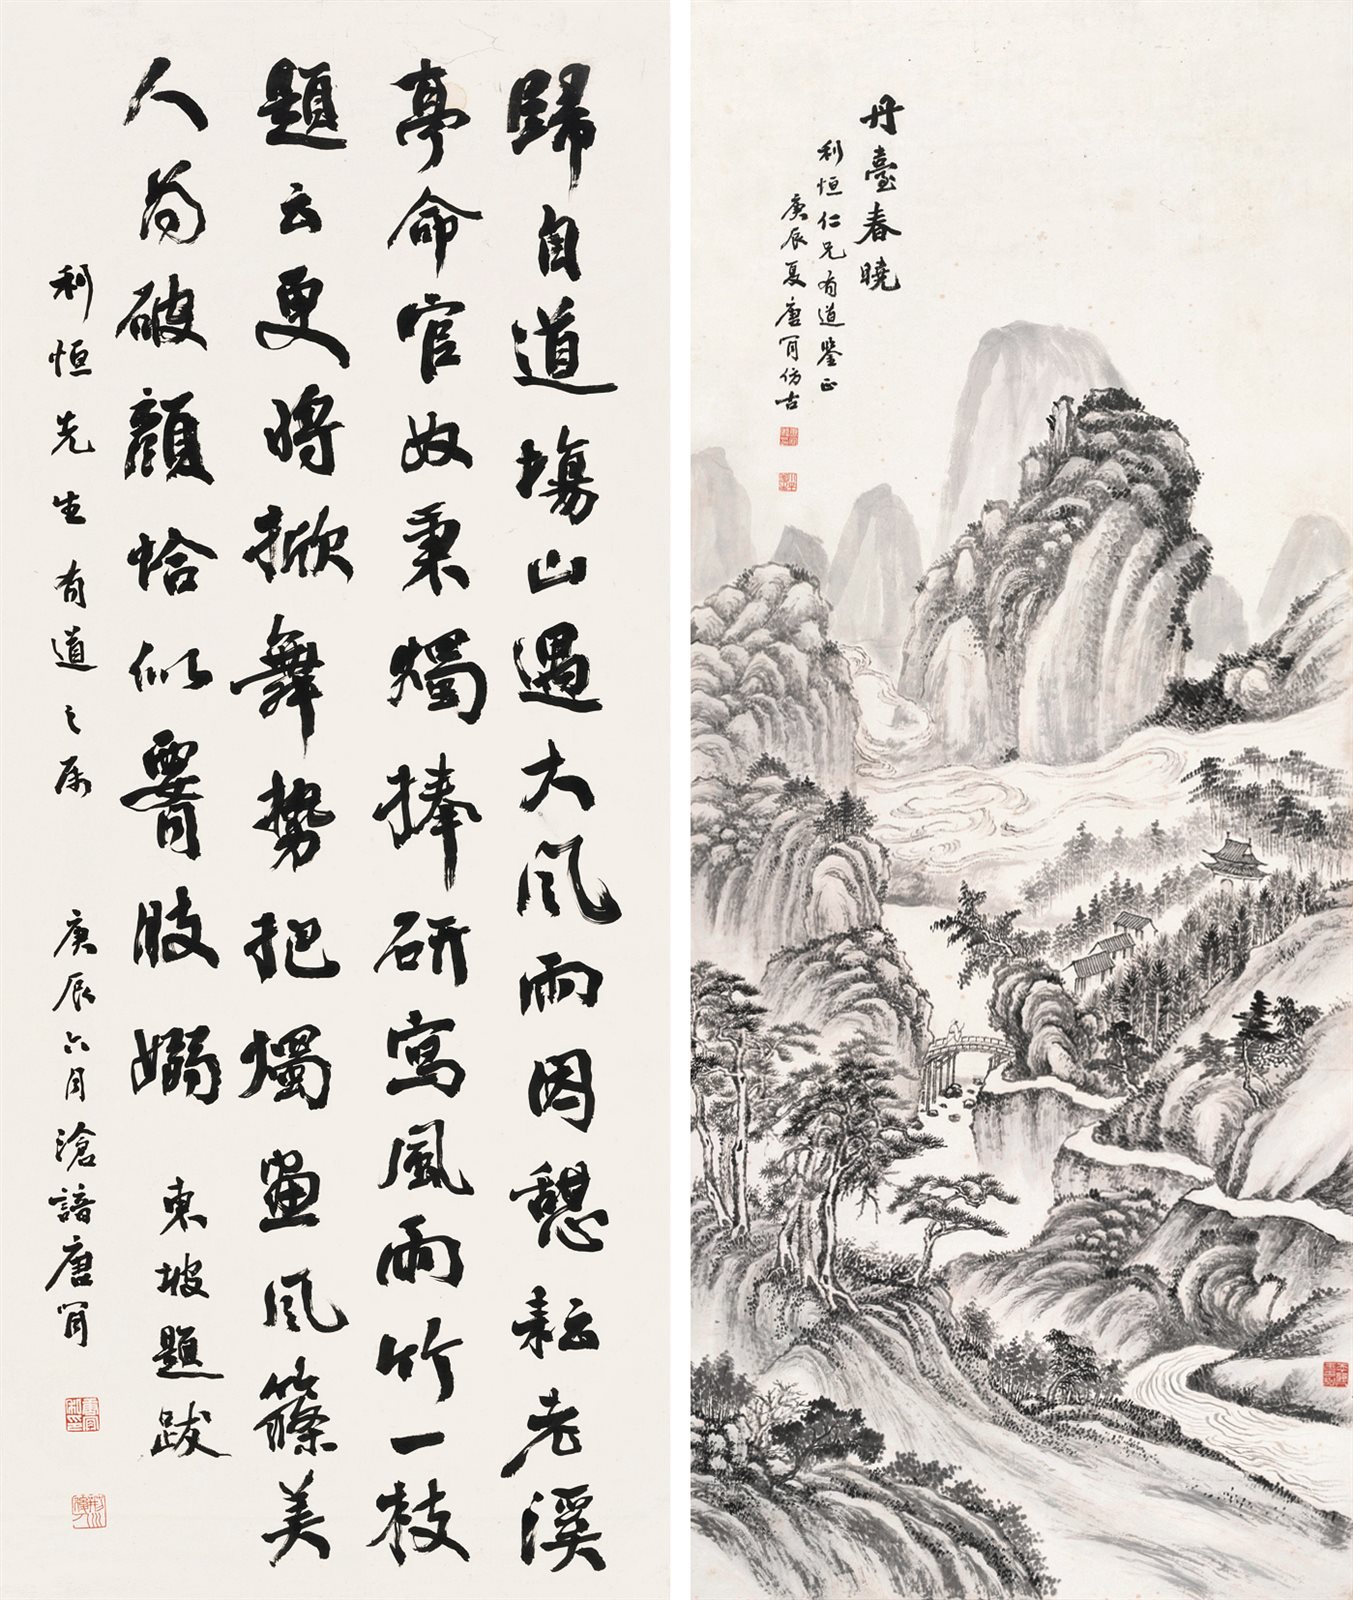 歸自道場山遇大風雨因憩耘老溪
亭命官奴秉燭捧研寫風雨竹一枝
題云更將掀舞勢把燭畫風篠美
人為破顏恰似腰肢嫋 東坡題跋
利恒先生有道之屬 庚辰六月滄諳唐肎
丹臺春曉
利恒仁兄有道鑒正
庚辰夏唐肎仿古